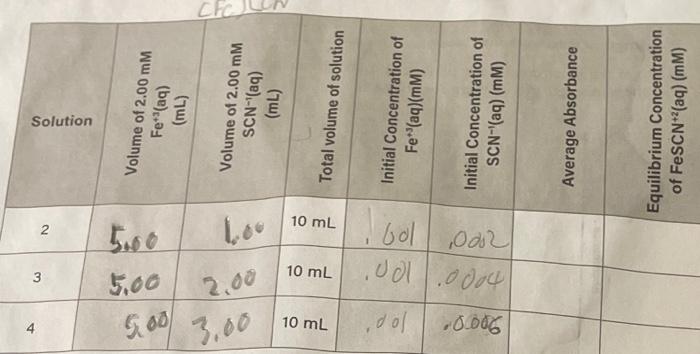 Solution
Volume of 2.00 mM
Fe⁺³(aq)
(mL)
Volume of 2.00 mM
SCN⁻¹(aq)
(mL)
Total volume of solution
Initial Concentration of
Fe⁺³(aq)(mM)
Initial Concentration of
SCN⁻¹(aq) (mM)
Average Absorbance
Equilibrium Concentration
of FeSCN⁺²(aq) (mM)
2 5.00 1.00 10 mL .001 .0002
3 5.00 2.00 10 mL .001 .0004
4 5.00 3.00 10 mL .001 .0006